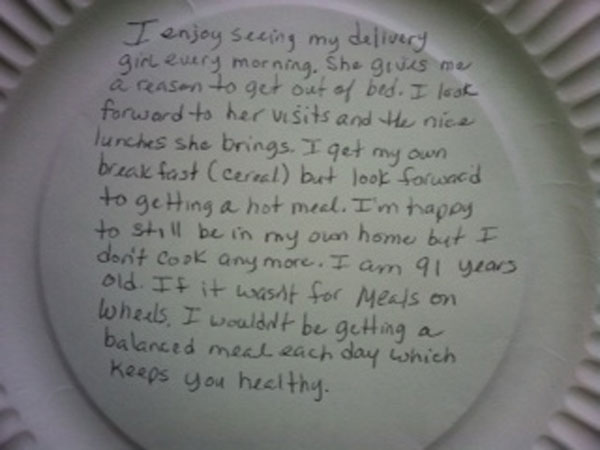 I enjoy seeing my delivery
girl every morning. She gives me
a reason to get out of bed. I look
forward to her visits and the nice
lunches she brings. I get my own
breakfast (cereal) but look forward
to getting a hot meal. I'm happy
to still be in my own home but I
don't cook anymore. I am 91 years
old. If it wasn't for Meals on
Wheels, I wouldn't be getting a
balanced meal each day which
keeps you healthy.